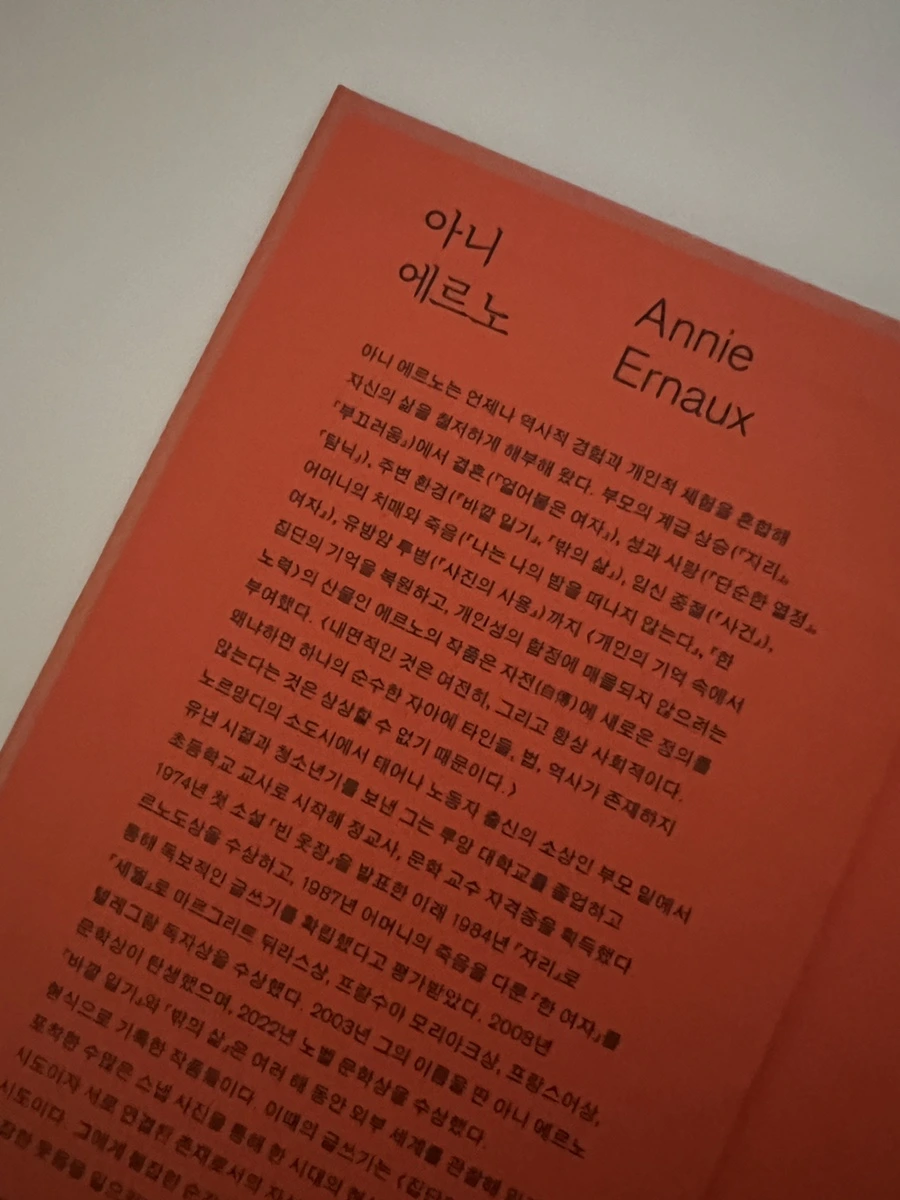 아니
에르노
Annie
Ernaux
아니 에르노는 언제나 역사적 경험과 개인적 체험을 혼합해
자신의 삶을 철저하게 해부해 왔다. 부모의 계급 상승(『자리』,
『부끄러움』)에서 결혼(『얼어붙은 여자』), 성과 사랑(『단순한 열정』,
『탐닉』), 주변 환경(『바깥 일기』, 『밖의 삶』), 임신 중절(『사건』),
어머니의 치매와 죽음(『나는 나의 밤을 떠나지 않는다』, 『한
여자』), 유방암 투병(『사진의 사용』)까지 〈개인의 기억 속에서
집단의 기억을 복원하고, 개인성의 함정에 매몰되지 않으려는
노력〉의 산물인 에르노의 작품은 자전(自傳)에 새로운 정의를
부여했다. 〈내면적인 것은 여전히, 그리고 항상 사회적이다.
왜냐하면 하나의 순수한 자아에 타인들, 법, 역사가 존재하지
않는다는 것은 상상할 수 없기 때문이다.〉
노르망디의 소도시에서 태어나 노동자 출신의 소상인 부모 밑에서
유년 시절과 청소년기를 보낸 그는 루앙 대학교를 졸업하고
초등학교 교사로 시작해 정교사, 문학 교수 자격증을 획득했다
1974년 첫 소설 『빈 옷장』을 발표한 이래 1984년 『자리』로
르노도상을 수상하고, 1987년 어머니의 죽음을 다룬 『한 여자』를
통해 독보적인 글쓰기를 확립했다고 평가받았다. 2008년
『세월』로 마르그리트 뒤라스상, 프랑수아 모리아크상, 프랑스어상,
텔레그람 독자상을 수상했다. 2003년 그의 이름을 딴 아니 에르노
문학상이 탄생했으며, 2022년 노벨 문학상을 수상했다.
『바깥 일기』와 『밖의 삶』은 여러 해 동안 외부 세계를 관찰해
형식으로 기록한 작품들이다. 이때의 글쓰기는 〈집단
포착한 수많은 스냅 사진을 통해 한 시대의
시도이자 서로 연결된 존재로서의
시도이다. 그에게 붙잡힌